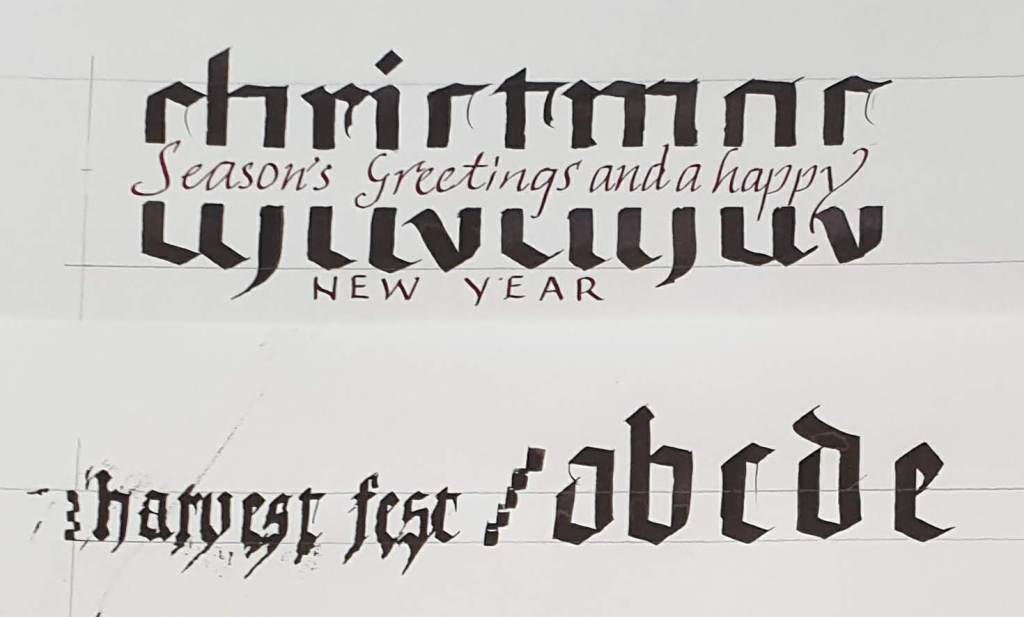 christmas
Season's Greetings and a happy
NEW YEAR
harvest fest abcde